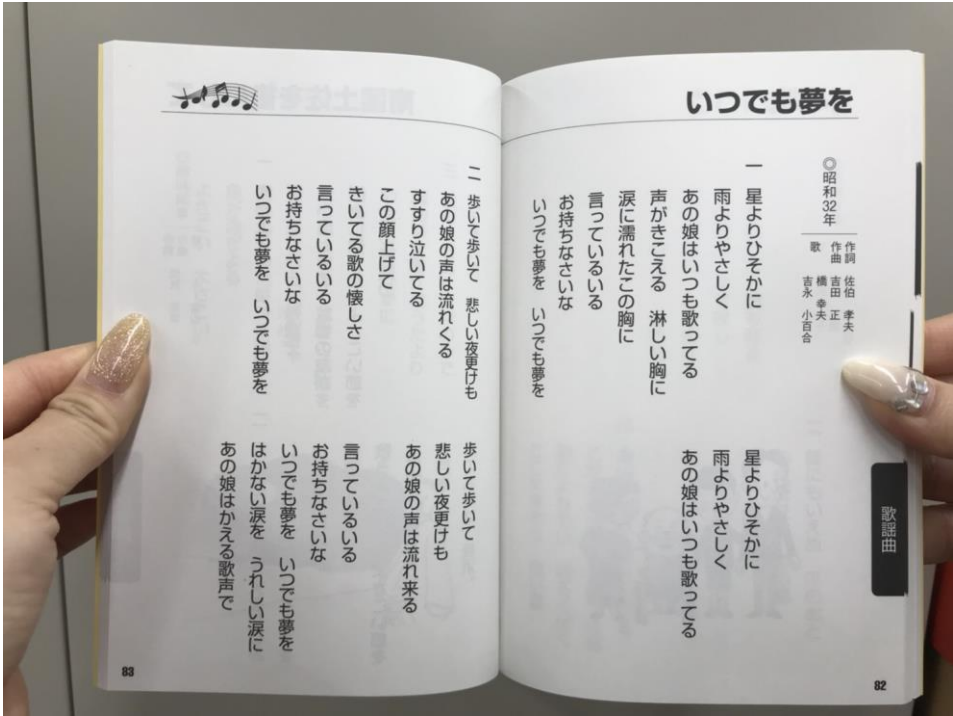 いつでも夢を
◎昭和32年
作詞 佐伯 孝夫
作曲 吉田 正
歌 橋 幸夫
吉永 小百合
一 星よりひそかに
雨よりやさしく
あの娘はいつも歌ってる
声がきこえる 淋しい胸に
涙に濡れたこの胸に
言っているいる
お持ちなさいな
いつでも夢を いつでも夢を
星よりひそかに
雨よりやさしく
あの娘はいつも歌ってる
歌謡曲
82
二 歩いて歩いて 悲しい夜更けも
あの娘の声は流れくる
すすり泣いてる
この顔上げて
きいてる歌の懐しさ
言っているいる
お持ちなさいな
いつでも夢を いつでも夢を
歩いて歩いて
悲しい夜更けも
あの娘の声は流れ来る
言っているいる
お持ちなさいな
いつでも夢を いつでも夢を
はかない涙を うれしい涙に
あの娘はかえる歌声で
83